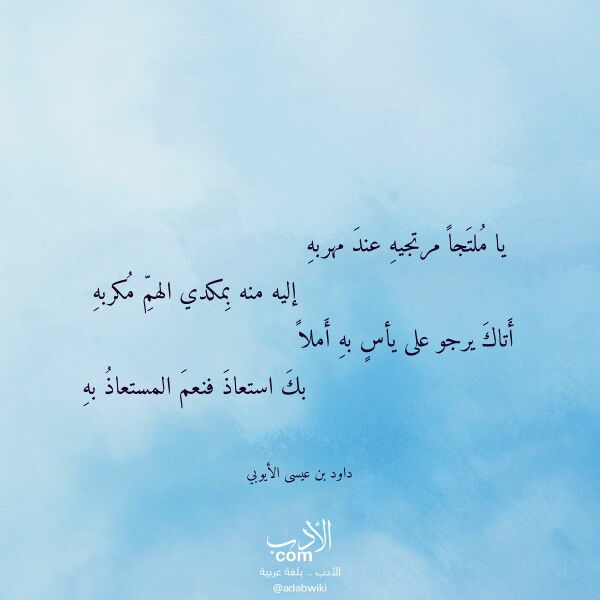 يا مُلتَجاً مرتجيهِ عندَ مهربهِ
إليه منه بِمكدي الهمِّ مُكربهِ
أَتاكَ يرجو على يأسٍ بهِ أَملاً
بكَ استعاذَ فنعمَ المستعاذُ بهِ
داود بن عيسى الأيوبي
الأدب
com
الأدب .. بلغة عربية
@adabwiki